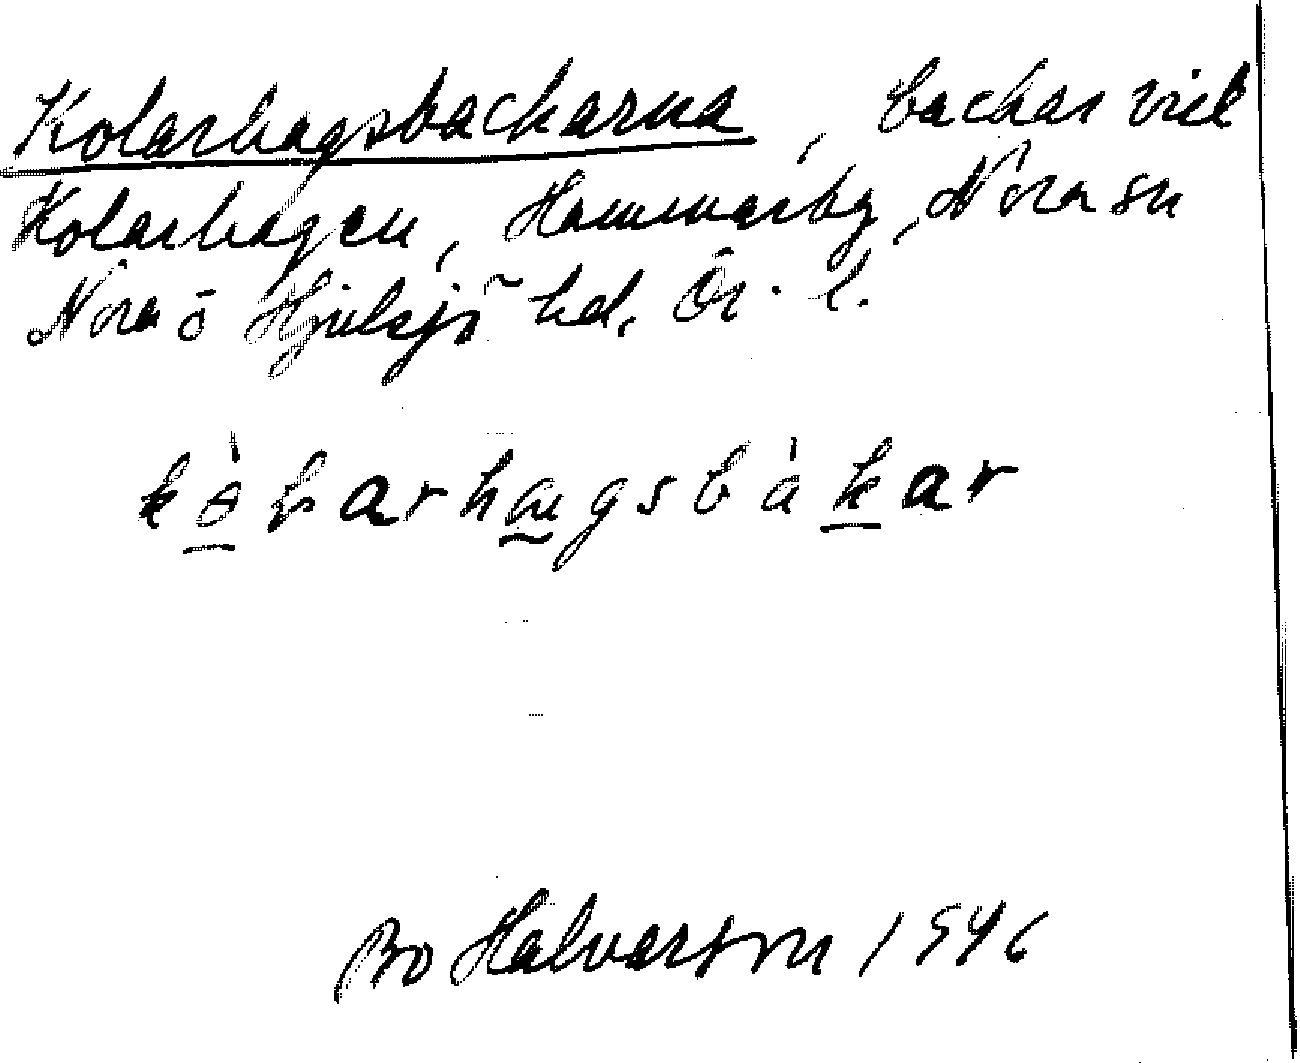 Kolarhagsbackarna, backar vid
Kolarhagen, Hammarby, Nora sn
Nora o Hjulsjö hd. Ör. l.
kòlarhagsbàkar
Bo Halvarson 1946